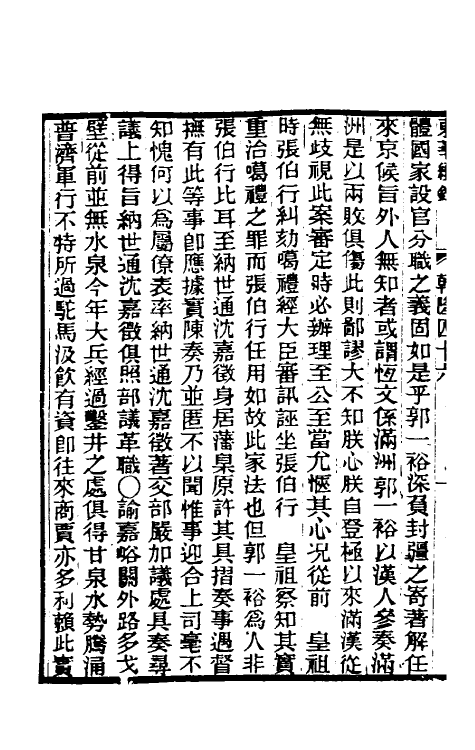 體國家設官分職之義固如是乎郭一裕深負封疆之寄著解任
來京候旨外人無知者或謂恆文係滿洲郭一裕以漢人參奏滿
洲是以兩敗俱傷此則鄙謬大不知朕心朕自登極以來滿漢從
無歧視此案審定時必辦理至公至當尤愜其心況從前　皇祖
時張伯行糾劾噶禮經大臣審訊誣坐張伯行　皇祖察知其實
重治噶禮之罪而張伯行任用如故此家法也但郭一裕為人非
張伯行比耳至納世通沈嘉徵身居藩臬原許其具摺奏事遇督
撫有此等事卽應據實陳奏乃並匿不以聞惟事迎合上司毫不
知愧何以爲屬僚表率納世通沈嘉徵著交部嚴加議處具奏尋
議上得旨納世通沈嘉徵俱照部議革職〇諭嘉峪關外路多戈
壁從前並無水泉今年大兵經過鑿井之處俱得甘泉水勢騰涌
普濟軍行不特所過駝馬汲飮有資卽往來商賈亦多利賴此實